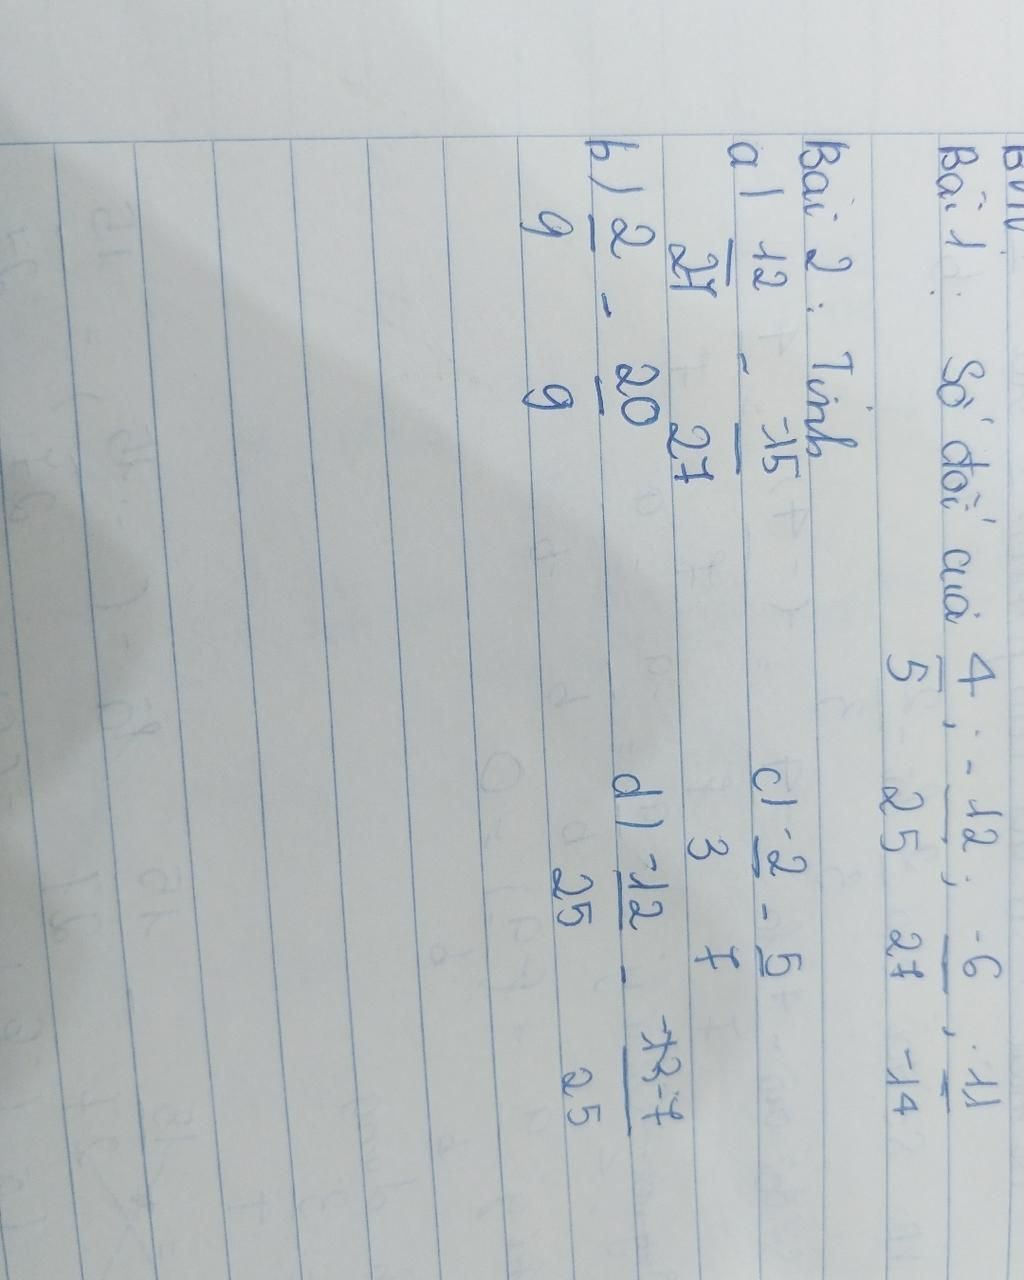 Bài 1: Số đối của 4/5 ; -12/25 ; -6/27 , 11/-14
Bài 2 : Tính
a) 12/27 - -15/27 c) -2/3 - 5/7
b) 2/9 - 20/9 d) -12/25 - -7/25